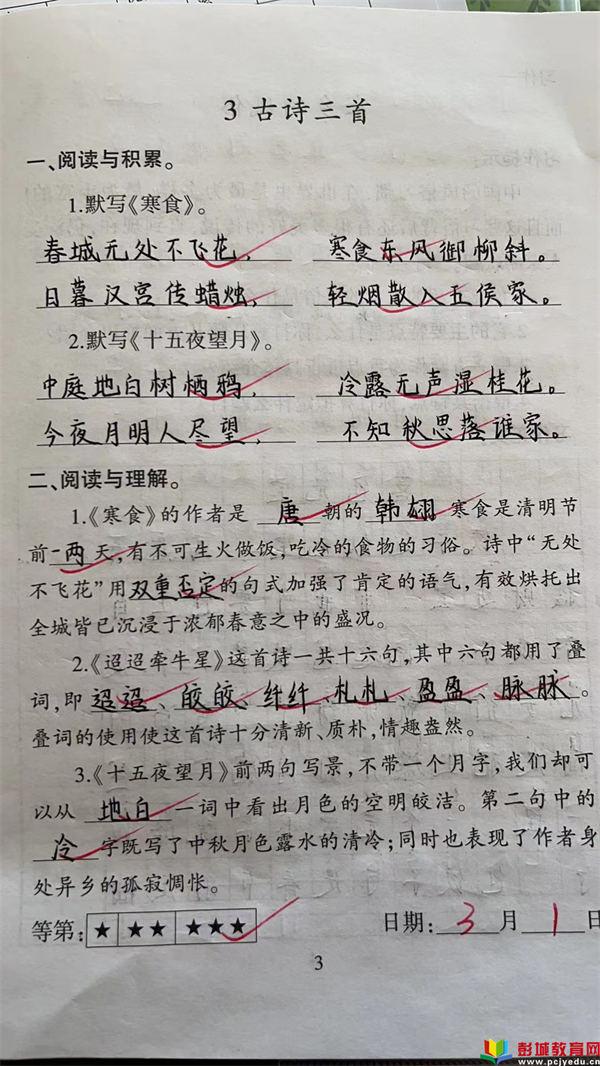 3 古诗三首
一、阅读与积累。
1.默写《寒食》。
春城无处不飞花， 寒食东风御柳斜。
日暮汉宫传蜡烛， 轻烟散入五侯家。
2.默写《十五夜望月》。
中庭地白树栖鸦， 冷露无声湿桂花。
今夜月明人尽望， 不知秋思落谁家。
二、阅读与理解。
1.《寒食》的作者是 唐 朝的 韩翃 寒食是清明节
前一两天,有不可生火做饭,吃冷的食物的习俗。诗中“无处
不飞花”用双重否定的句式加强了肯定的语气,有效烘托出
全城皆已沉浸于浓郁春意之中的盛况。
2.《迢迢牵牛星》这首诗一共十六句,其中六句都用了叠
词,即 迢迢、皎皎、纤纤、札札、盈盈、脉脉。
叠词的使用使这首诗十分清新、质朴,情趣盎然。
3.《十五夜望月》前两句写景,不带一个月字,我们却可
以从 地白 一词中看出月色的空明皎洁。第二句中的
冷 字既写了中秋月色露水的清冷;同时也表现了作者身
处异乡的孤寂惆怅。
等第: ★ ★★ ★★★ 日期: 3 月 1 日
3
彭城教育网
www.pcjyedu.cn